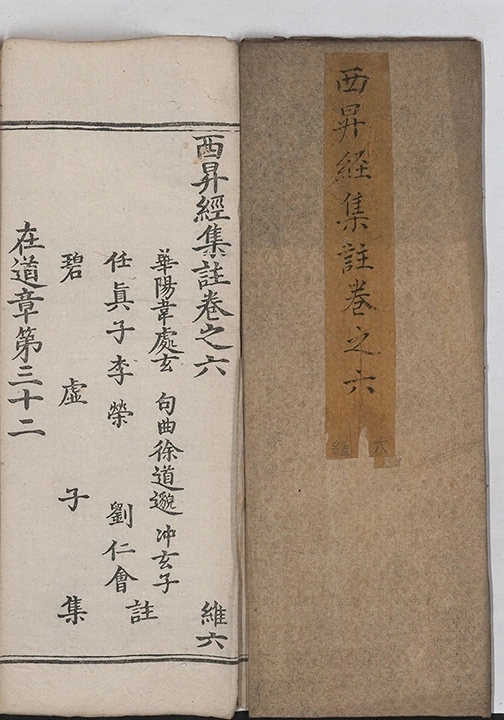 西昇經集註卷之六
維六
西昇經集註卷之六
維六
華陽韋處玄 句曲徐道邈 冲玄子
任眞子李榮 劉仁會 註
碧虛子 集
在道章第三十二